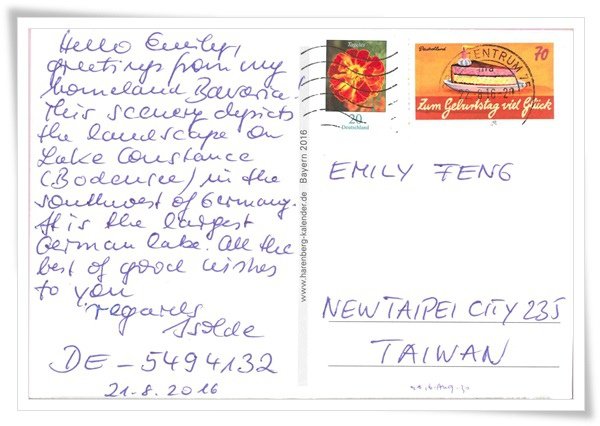 Hello Emily,
greetings from my
homeland Bavaria!
This scenery depicts
the landscape on
Lake Constance
(Bodensee) in the
southwest of Germany.
It is the largest
German lake. All the
best of good wishes
to you
regards
Isolde
DE-5494132
21-8.2016
www.harenberg-kalender.de Bayern 2016
Tagetes
20
Deutschland
Deutschland
70
ENTRUM 75
Zum Geburtstag viel Glück
EMILY FENG
NEW TAIPEI CITY 235
TAIWAN